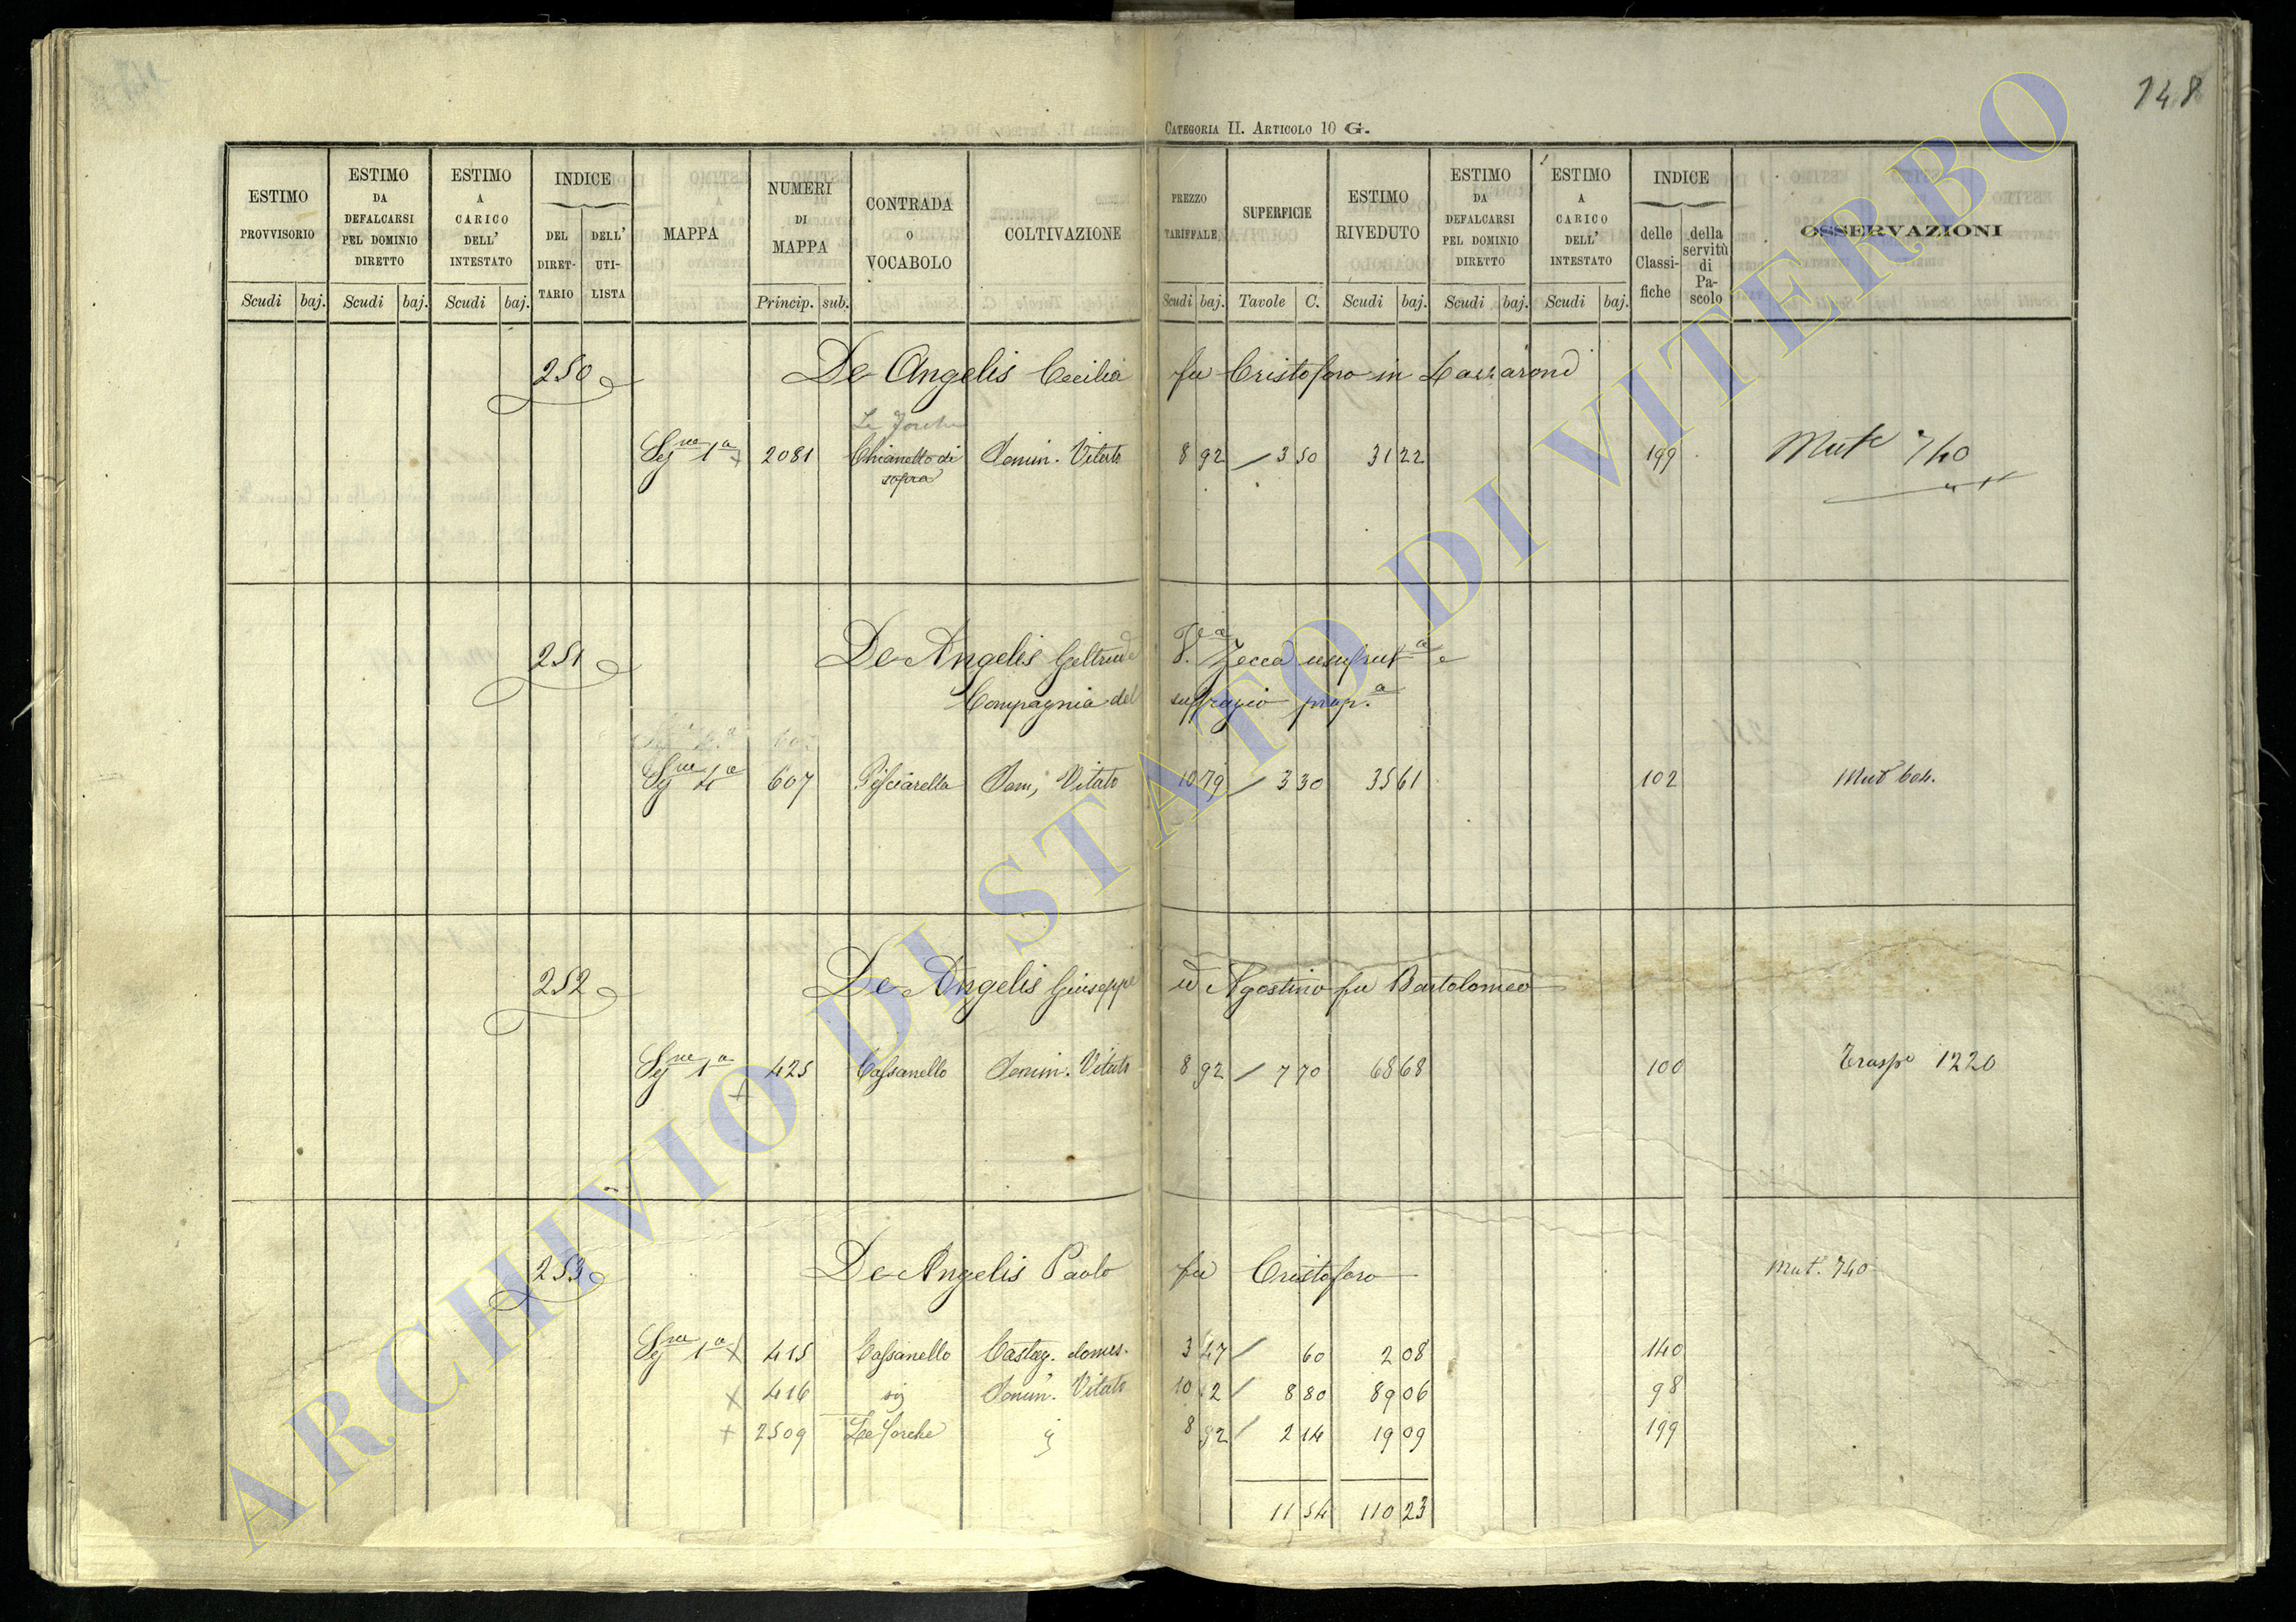 148
CATEGORIA II. ARTICOLO 10 G.
ESTIMO PROVVISORIO Scudi baj.
ESTIMO DA DEFALCARSI PEL DOMINIO DIRETTO Scudi baj.
ESTIMO A CARICO DELL' INTESTATO Scudi baj.
INDICE DEL DIRET-TARIO DELL' UTI-LISTA
MAPPA
NUMERI DI MAPPA Princip. sub.
CONTRADA O VOCABOLO
COLTIVAZIONE
PREZZO TARIFFALE Scudi baj.
SUPERFICIE Tavole C.
ESTIMO RIVEDUTO Scudi baj.
ESTIMO DA DEFALCARSI PEL DOMINIO DIRETTO Scudi baj.
ESTIMO A CARICO DELL' INTESTATO Scudi baj.
INDICE delle Classi-fiche della servitù di Pa-scolo
OSSERVAZIONI
250 De Angelis Cecilia fu Cristoforo in Lazzaroni
Le Forche
Seg.ne 1a x 2081 Chianetto di sopra Semin. Vitato 8 92 / 3 50 31 22 199 Mut.e 740
251 De Angelis Geltrude V.a Zecca usufrut.a e
Compagnia del suffragio prop.a
Seg.ne 4a 607 Pisciarella Sem, Vitato 10 79 / 3 30 35 61 102 Mut.e 604.
252 De Angelis Giuseppe ed Agostino fu Bartolomeo
Seg.ne 1a x 425 Cassanello Semin. Vitato 8 92 / 7 70 68 68 100 Trasp.o 1220
253 De Angelis Paolo fu Cristoforo Mut.e 740
Seg.ne 1a x 415 Cassanello Castag. domes. 3 47 / 60 2 08 140
x 416 sig Semin. Vitato 10 12 / 8 80 89 06 98
x 2509 Le Forche 8 92 / 2 14 19 09 199
11 54 110 23
ARCHIVIO DI STATO DI VITERBO